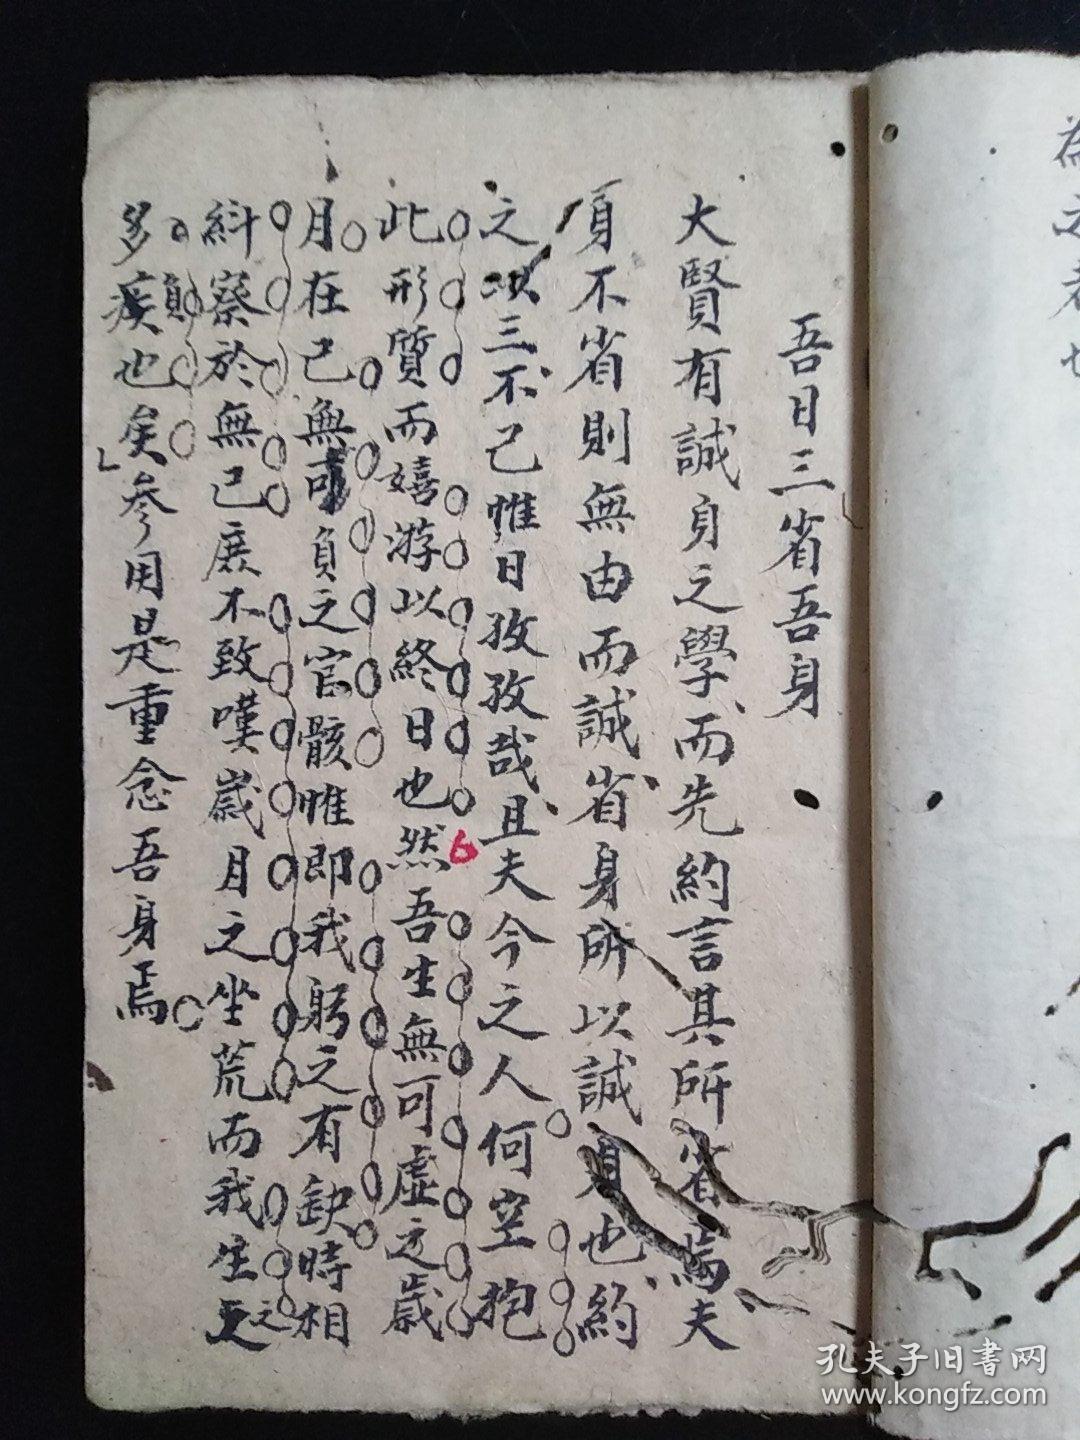 為之者也
吾日三省吾身
大賢有誠身之學而先約言其所省焉夫
身不省則無由而誠省身所以誠身也約
之以三不已惟日孜孜哉且夫今之人何空抱
此形質而嬉游以終日也然吾生無可虛之歲
月在己無可負之官骸惟即我躬之有缺時相
糾察於無已庶不致嘆歲月之坐荒而我生之
多負疚也矣參用是重念吾身焉
孔夫子旧書网
www.kongfz.com